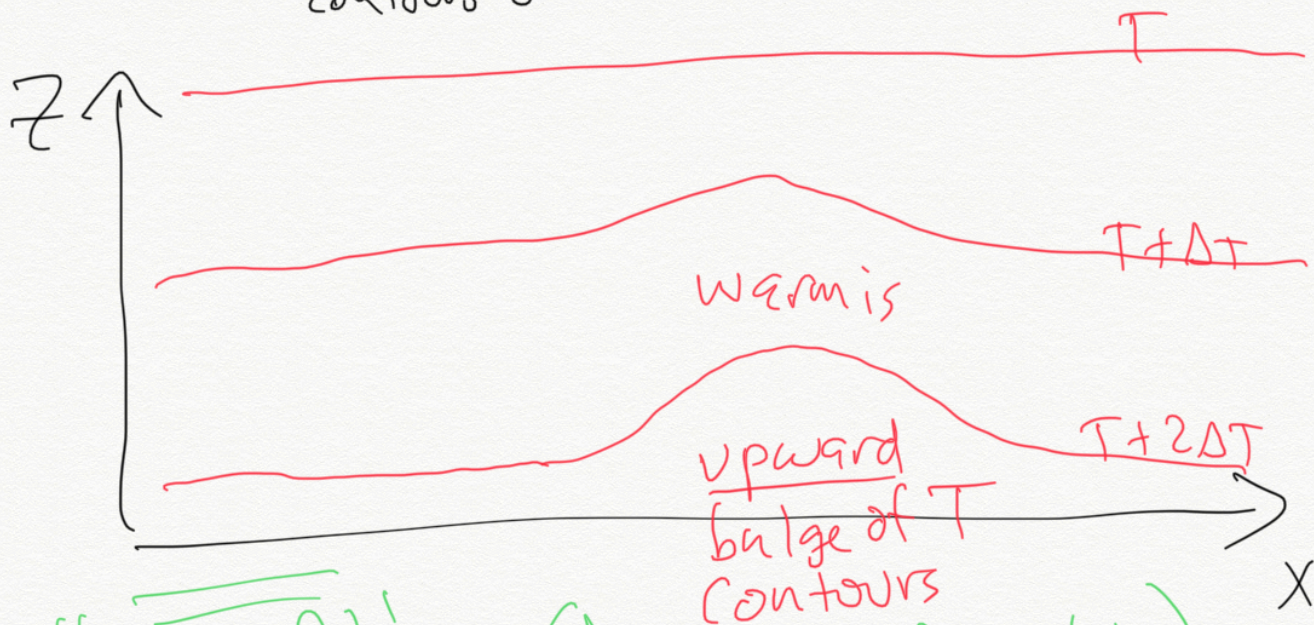 contours
T
Z
T+ΔT
warm is
T+2ΔT
upward
bulge of T
contours
X